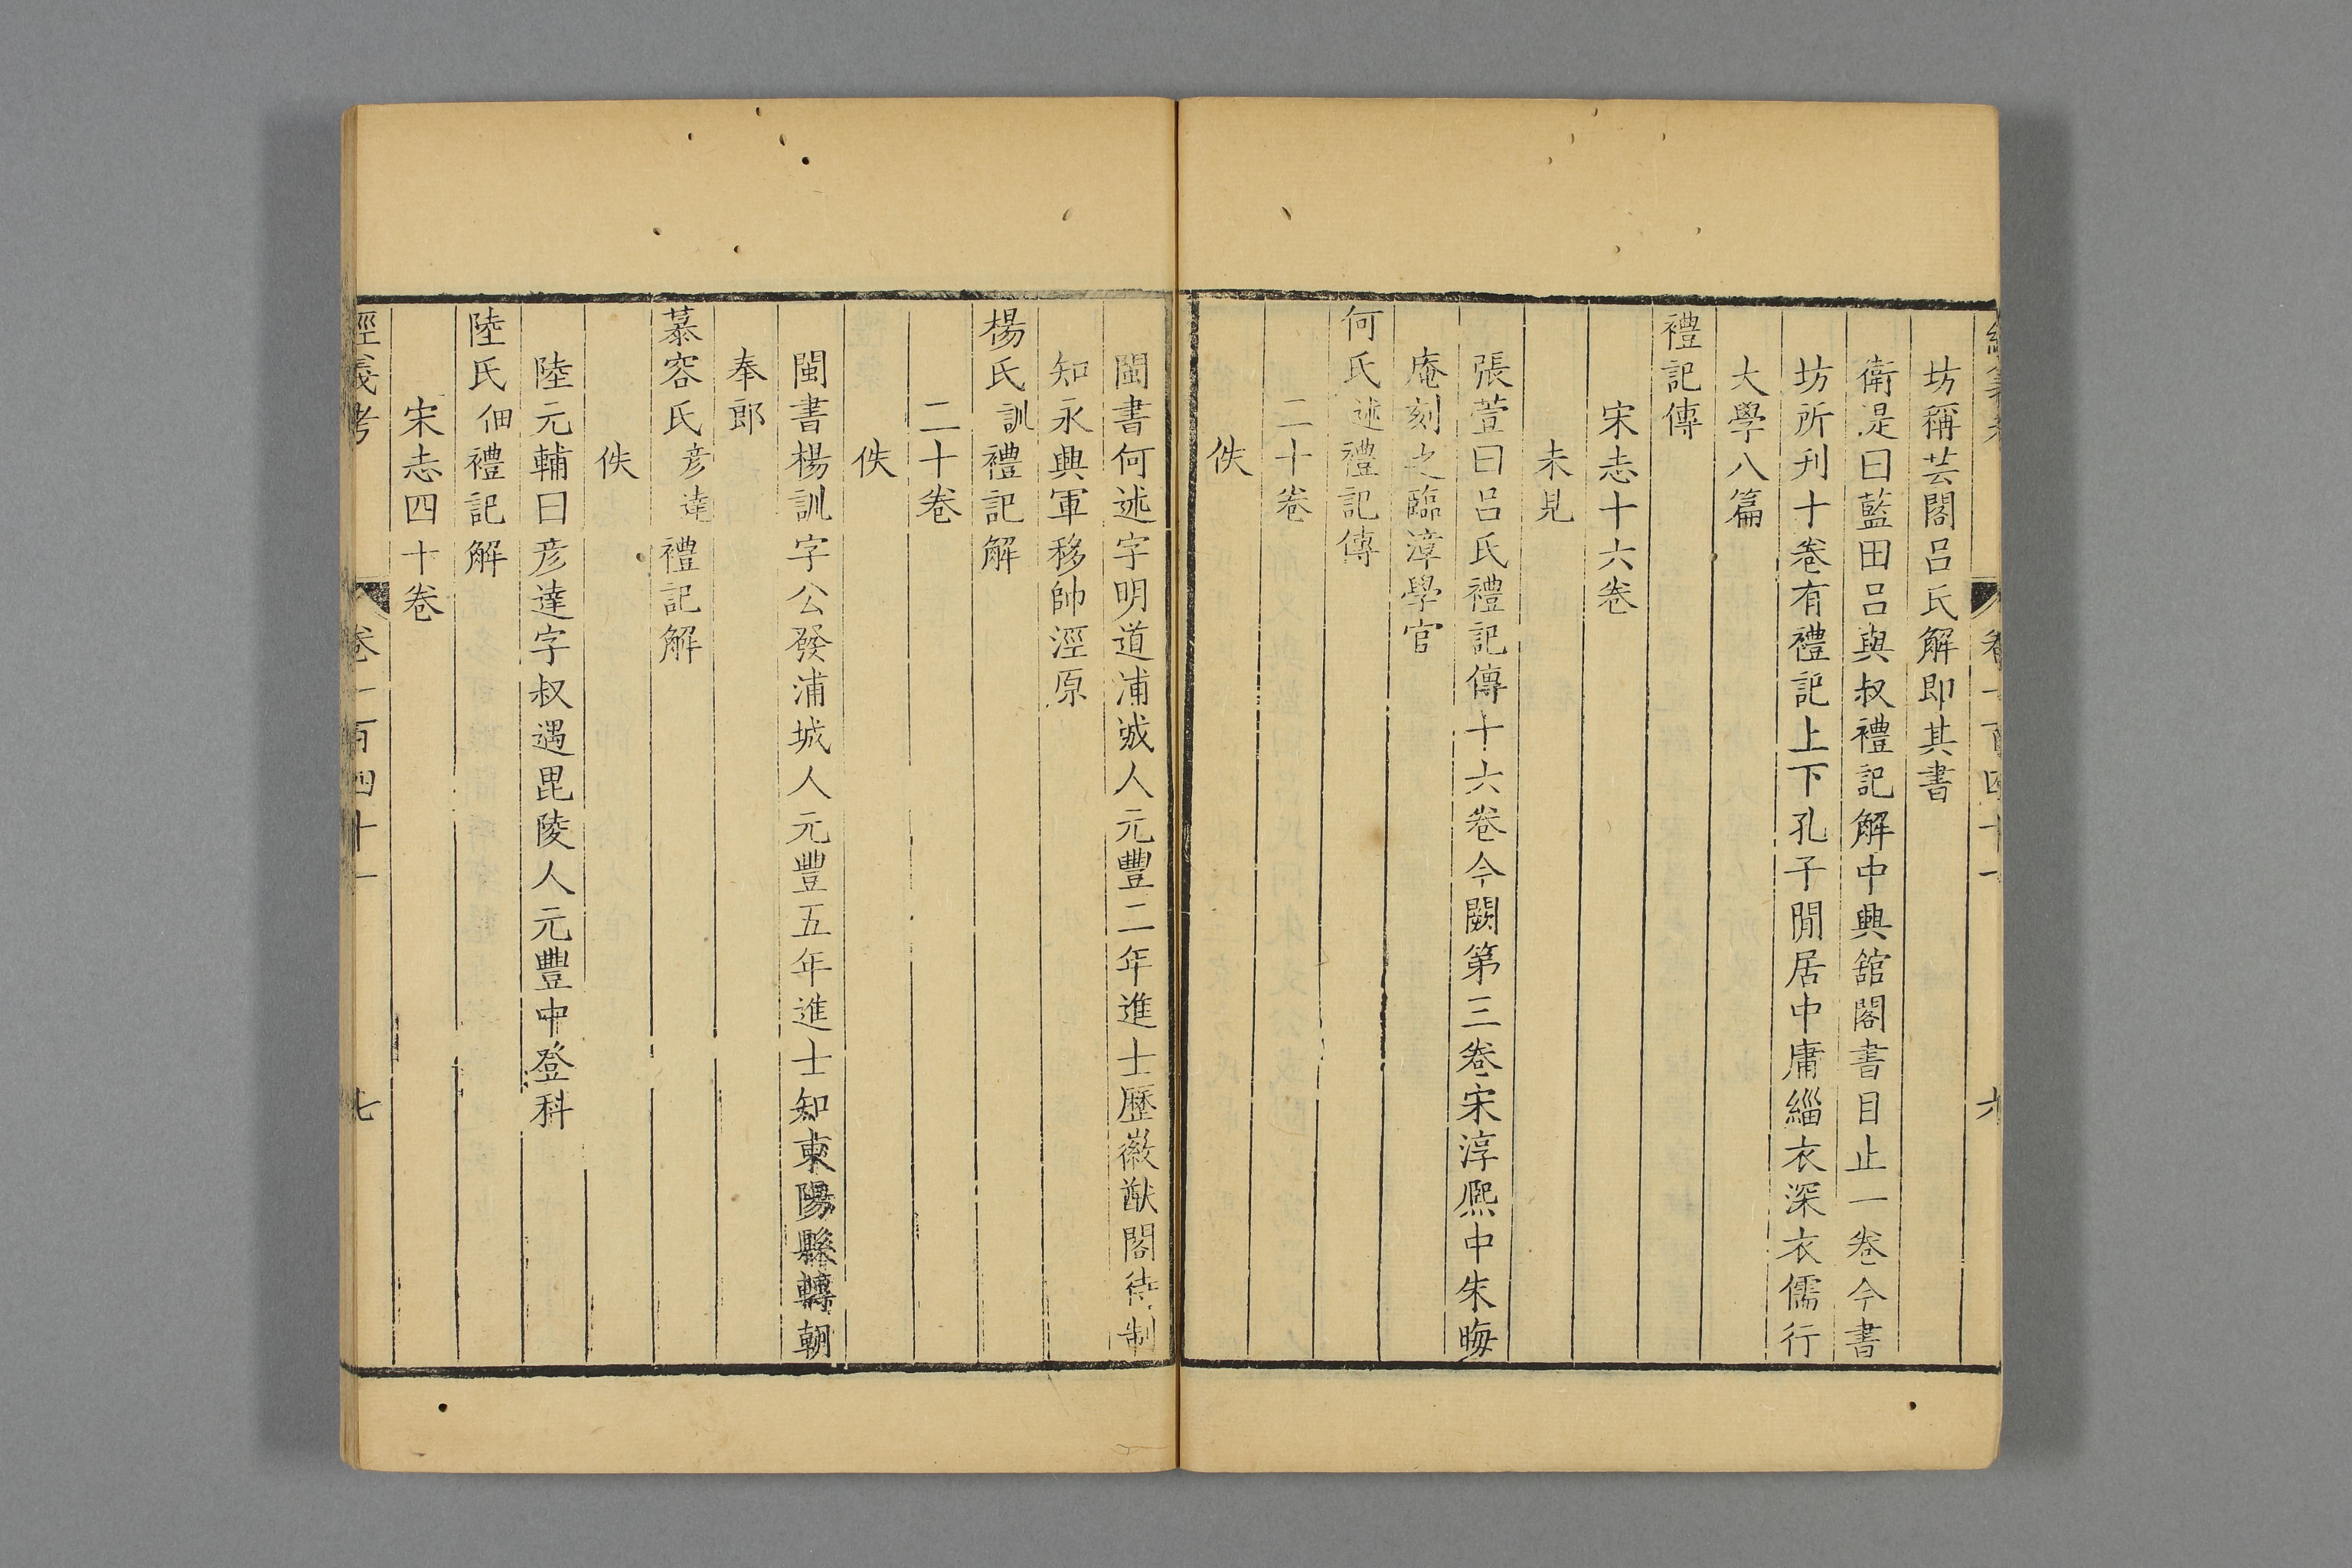 坊稱芸閣呂氏解即其書
衛湜曰藍田呂與叔禮記解中興舘閣書目止一卷今書
坊所刋十卷有禮記上下孔子閒居中庸緇衣深衣儒行
大學八篇
禮記傳
宋志十六卷
未見
張萱曰呂氏禮記傳十六卷今闕第三卷宋淳熈中朱晦
庵刻之臨漳學官
何氏述禮記傳
二十卷
佚
閩書何述字明道浦城人元豐二年進士歷徽猷閣待制
知永興軍移帥涇原
楊氏訓禮記解
二十卷
佚
閩書楊訓字公發浦城人元豐五年進士知東陽縣轉朝
奉郎
慕容氏彦達禮記解
佚
陸元輔曰彦達字叔遇毘陵人元豐中登科
陸氏佃禮記解
宋志四十卷
經義考 卷一百四十一 七